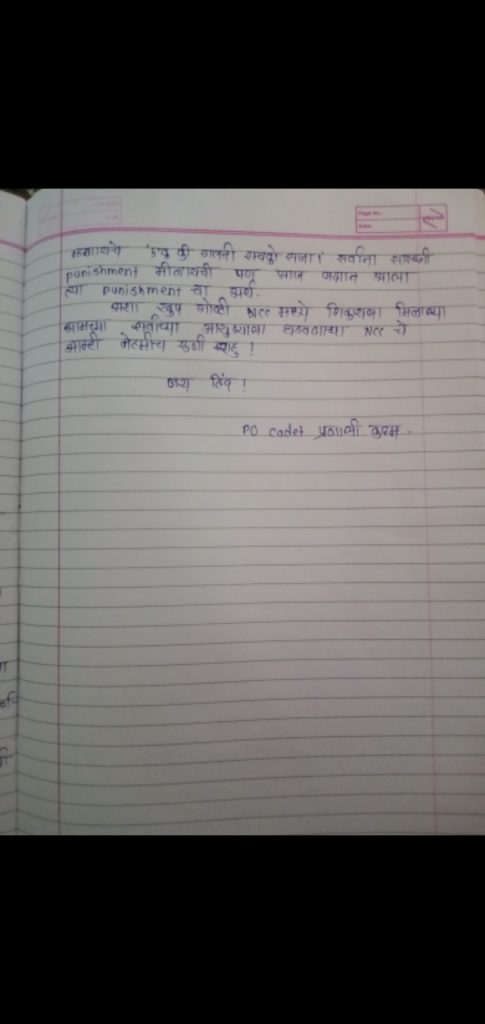 Page No.:
Date:
म्हणायचे 'एक की गलती सबको सजा!' सर्वांना सारखी
punishment मीळायची पण आज लक्षात आल्या
त्या punishment चा अर्थ.
अशा खूप गोष्टी Ncc मध्ये शिकायला मिळाल्या
आमच्या सर्वांच्या आयुष्याला घडवणाऱ्या Ncc चे
आम्ही नेहमीच ऋणी राहु!
जय हिंद!
PO Cadet प्रणाली कदम.